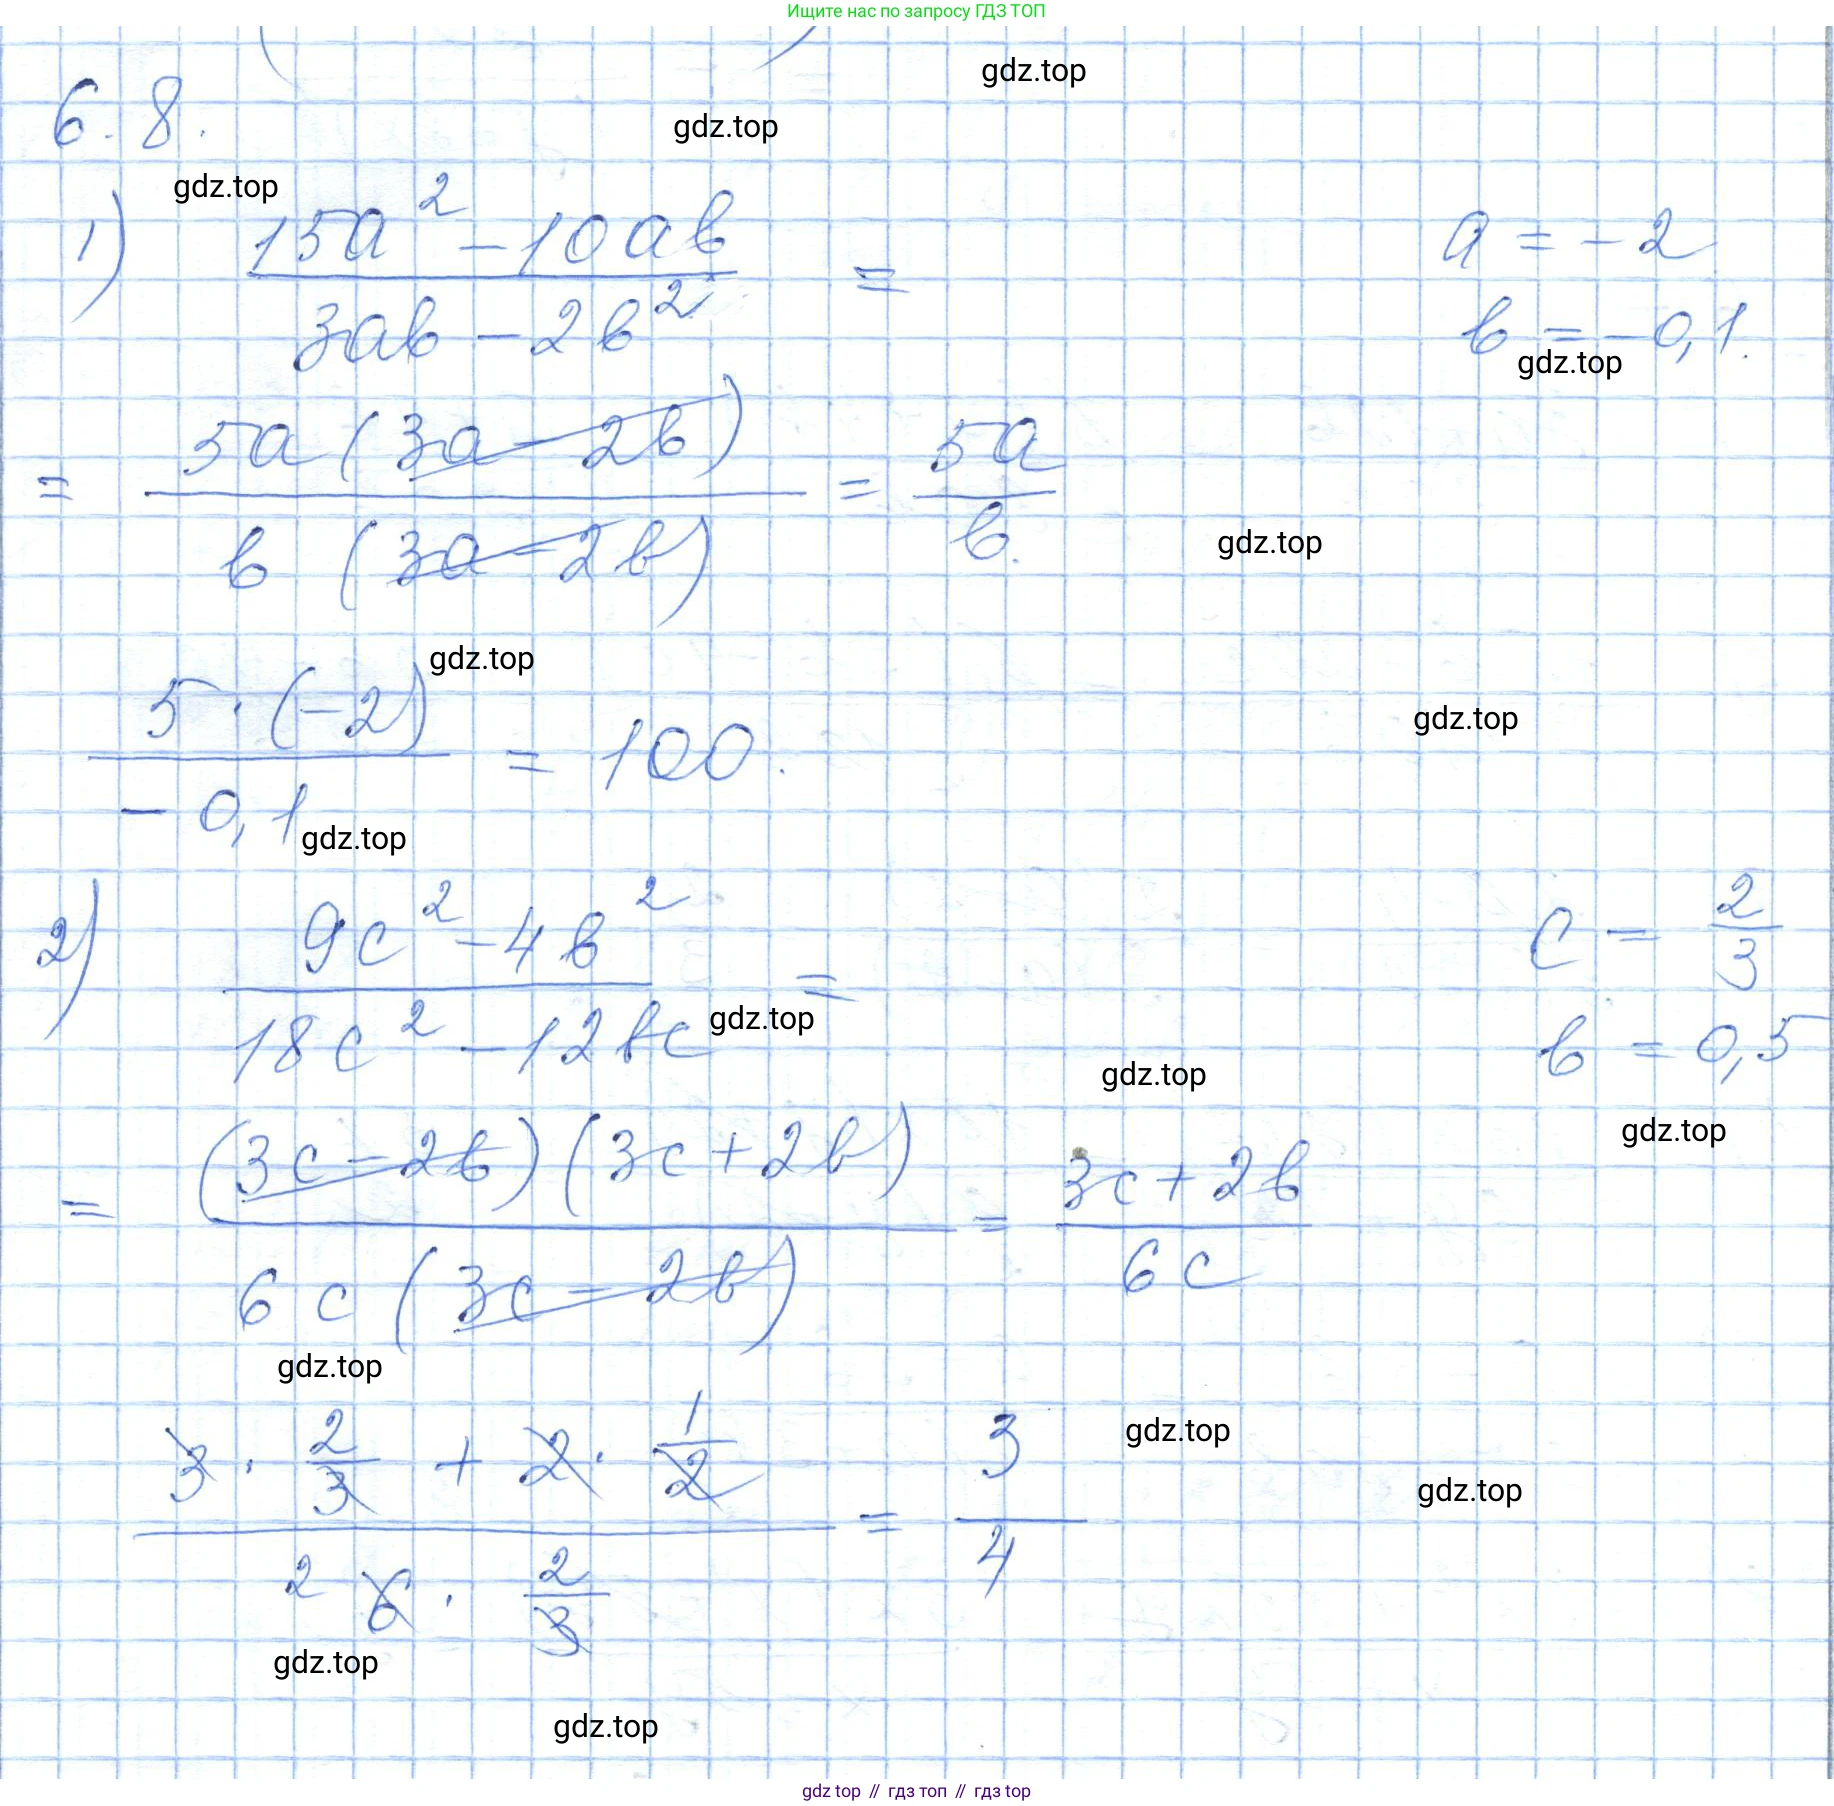 Ищите нас по запросу ГДЗ ТОП
gdz.top
6.8.
gdz.top
gdz.top
1) (15a² - 10ab)/(3ab - 2b²) =
a = -2
b = -0,1.
gdz.top
= 5a(3a - 2b)/b(3a - 2b) = 5a/b.
gdz.top
gdz.top
5 · (-2)/-0,1 = 100.
gdz.top
gdz.top
2) (9c² - 4b²)/(18c² - 12bc) =
c = 2/3
b = 0,5
gdz.top
gdz.top
gdz.top
= (3c - 2b)(3c + 2b)/6c(3c - 2b) = (3c + 2b)/6c
gdz.top
(3 · 2/3 + 2 · 1/2)/(2 6 · 2/3) = 3/4
gdz.top
gdz.top
gdz.top
gdz.top
gdz top // гдз топ // гдз top